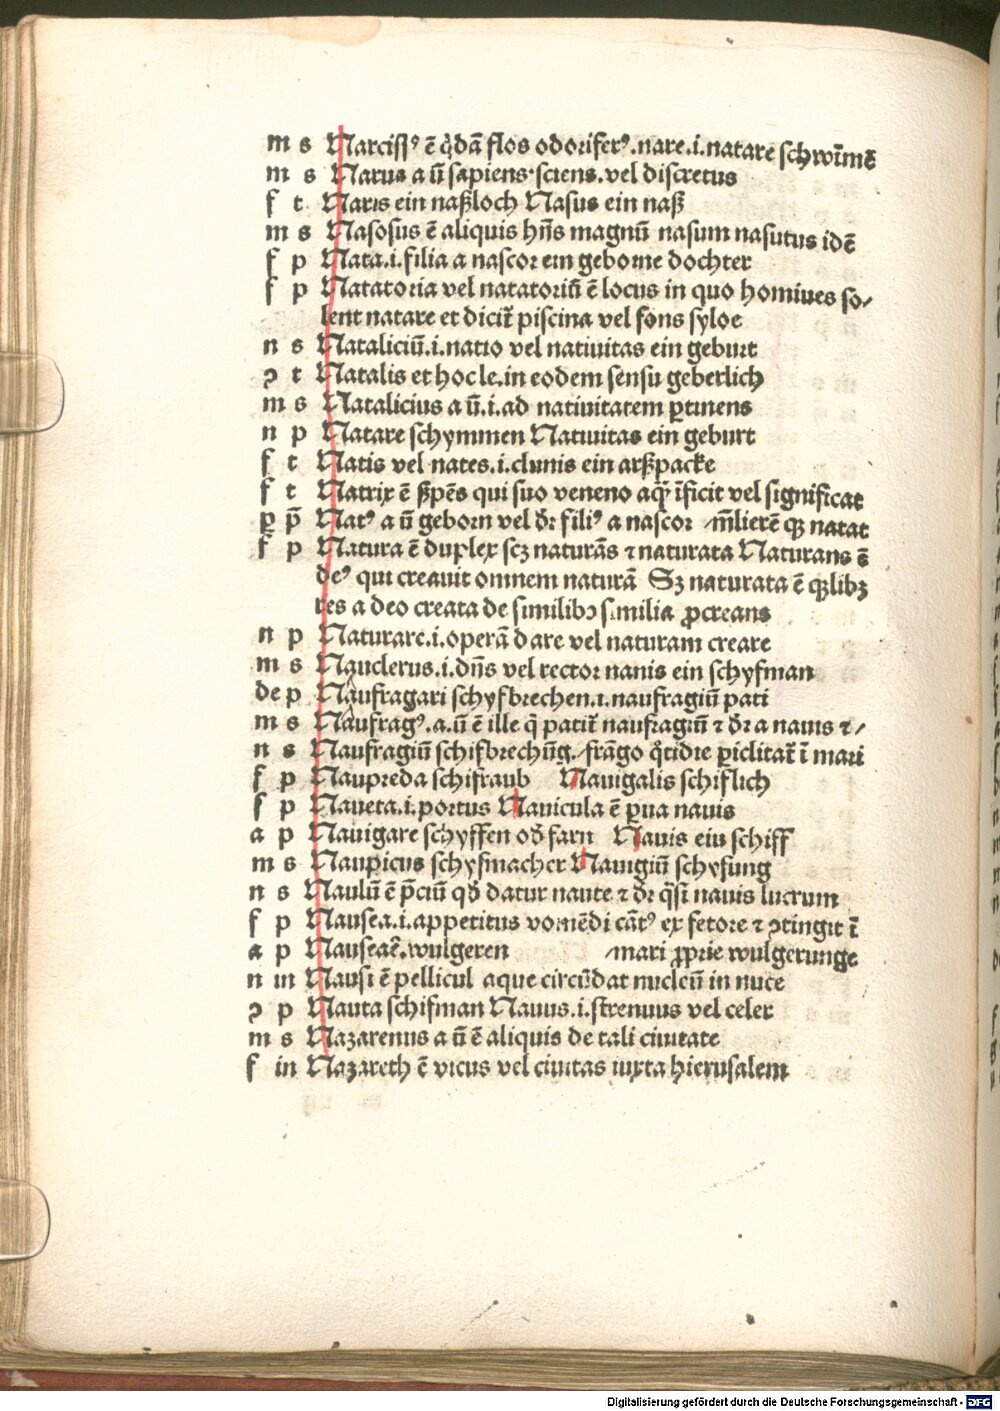 m s Narcissꝰ ē q̇dā flos odoriferꝰ.nare.i.natare schwīmē
m s Narus a ū sapiens·sciens.vel discretus
f t Naris ein naßloch Nasus ein naß
m s Nasosus ē aliquis hn̄s magnū nasum nasutus idē
f p Nata.i.filia a nascor ein geborne dochter
f p Natatoria vel natatoriū ē locus in quo homines so⸗
lent natare et dicit᷑ piscina vel fons syloe
n s Nataliciū.i.natio vel natiuitas ein geburt
ꝯ t Natalis et hoc le.in eodem sensu geberlich
m s Natalicius a ū.i.ad natiuitatem ꝑtinens
n p Natare schymmen Natiuitas ein geburt
f t Natis vel nates.i.clunis ein arßpacke
f t Natrix ē ẜpēs qui suo veneno aq̄ īficit vel significat
ꝑ p̄ Natꝰ a ū geborn vel dr̄ filiꝰ a nascor /m̄lierē qꝫ natat
f p Natura ē duplex scꝫ naturās ⁊ naturata Naturans ē
deꝰ qui creauit omnem naturā Sꝫ naturata ē qꝫlibꝫ
res a deo creata de similibꝰ similia ꝓcreans
n p Naturare.i.operā dare vel naturam creare
m s Nauclerus.i.dn̄s vel rector nauis ein schyfman
de p Naufragari schyfbrechen.i.naufragiū pati
m s Naufragꝰ.a.ū ē ille q̇ patit᷑ naufragiū ⁊ dr̄ a nauis ⁊⸗
n s Naufragiū schifbrechūg./frāgo q̇tidie ꝑiclitat᷑ ī mari
f p Naupreda schifraub Nauigalis schiflich
f p Naueta.i.portus Nauicula ē ꝑua nauis
a p Nauigare schyffen od̓ farn Nauis ein schiff
m s Naupicus schyfmacher Nauigiū schyfung
n s Naulū ē p̄ciū qd̓ datur naute ⁊ dr̄ q̄si nauis lucrum
f p Nausea.i.appetitus vomēdi cātꝰ ex fetore ⁊ ꝯtingit ī
a p Nauseaē.wulgeren /mari ꝓprie wulgerunge
n in Nausi ē pellicul aque circūdat nucleū in nuce
ꝯ p Nauta schifman Nauus.i.strenuus vel celer
m s Nazarenus a ū ē aliquis de tali ciuitate
f in Nazareth ē vicus vel ciuitas iuxta hierusalem
Digitalisierung gefördert durch die Deutsche Forschungsgemeinschaft - DFG